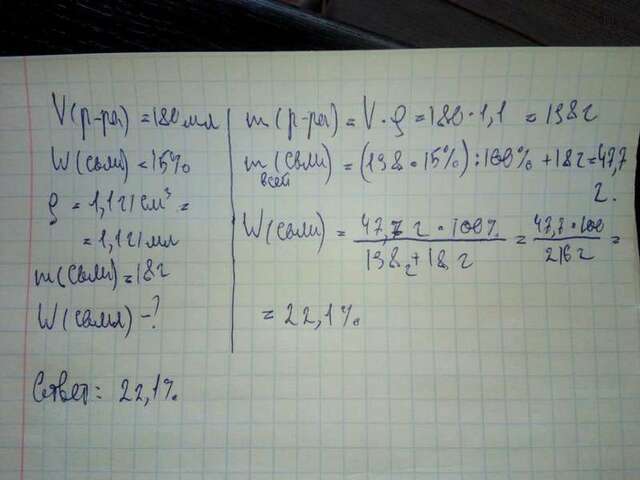 V(р-ра) = 180 мл
W(соли) = 15%
ρ = 1,1 г/см³ =
= 1,1 г/мл
m(соли) = 18 г
W(соли) - ?
m(р-ра) = V · ρ = 180 · 1,1 = 198 г
m(соли) = (198 · 15%) : 100% + 18 г = 47,7
всей
г.
W(соли) = 47,7 г · 100% / 198 г + 18 г = 47,7 · 100 / 216 г =
= 22,1%
Ответ: 22,1%